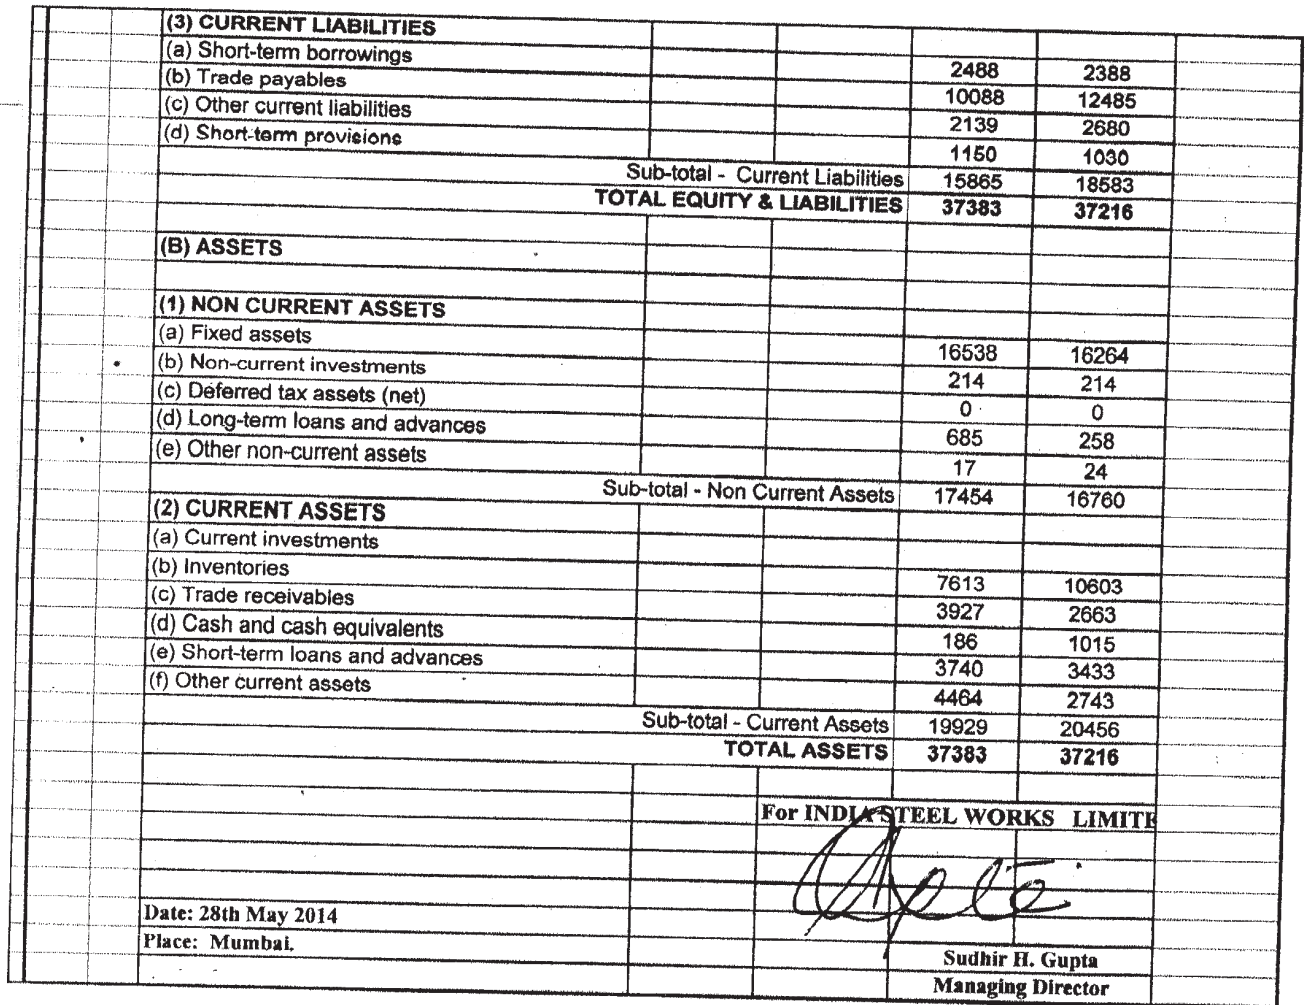 (3) CURRENT LIABILITIES
(a) Short-term borrowings 2488 2388
(b) Trade payables 10088 12485
(c) Other current liabilities 2139 2680
(d) Short-term provisions 1150 1030
Sub-total - Current Liabilities 15865 18583
TOTAL EQUITY & LIABILITIES 37383 37216
(B) ASSETS
(1) NON CURRENT ASSETS
(a) Fixed assets 16538 16264
(b) Non-current investments 214 214
(c) Deferred tax assets (net) 0 0
(d) Long-term loans and advances 685 258
(e) Other non-current assets 17 24
Sub-total - Non Current Assets 17454 16760
(2) CURRENT ASSETS
(a) Current investments
(b) Inventories 7613 10603
(c) Trade receivables 3927 2663
(d) Cash and cash equivalents 186 1015
(e) Short-term loans and advances 3740 3433
(f) Other current assets 4464 2743
Sub-total - Current Assets 19929 20456
TOTAL ASSETS 37383 37216
For INDIA STEEL WORKS LIMITE
Date: 28th May 2014
Place: Mumbai.
Sudhir H. Gupta
Managing Director